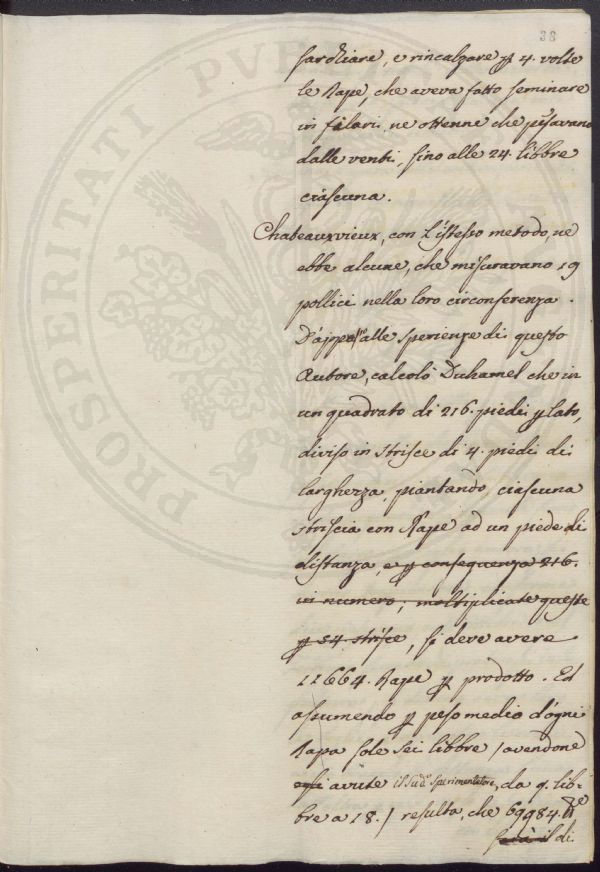 38
sarchiare, e rincalzare p 4. volte
le Rape, che aveva fatto seminare
in filari, ne ottenne che pesavano
dalle venti, fino alle 24. libbre
ciascuna.
Chateauxvieux, con l'istesso metodo, ne
ebbe alcune, che misuravano 19
pollici nella loro circonferenza.
D'appresso alle sperienze di questo
Autore, calcolò Duhamel che in
un quadrato di 216. piedi p lato,
diviso in strisce di 4. piedi di
larghezza, piantando ciascuna
striscia con Rape ad un piede di
distanza, e p conseguenza 216.
in numero; moltiplicate queste
p 54. strisce, si deve avere
11664. Rape p prodotto. Ed
assumendo p peso medio d'ogni
Rapa sole sei libbre / avendone
avute il sud.º Sperimentatore, da 9. lib-
bre a 18. / resulta, che 69984. lb.e
sarà il di
PROSPERITATI PVBLICAE